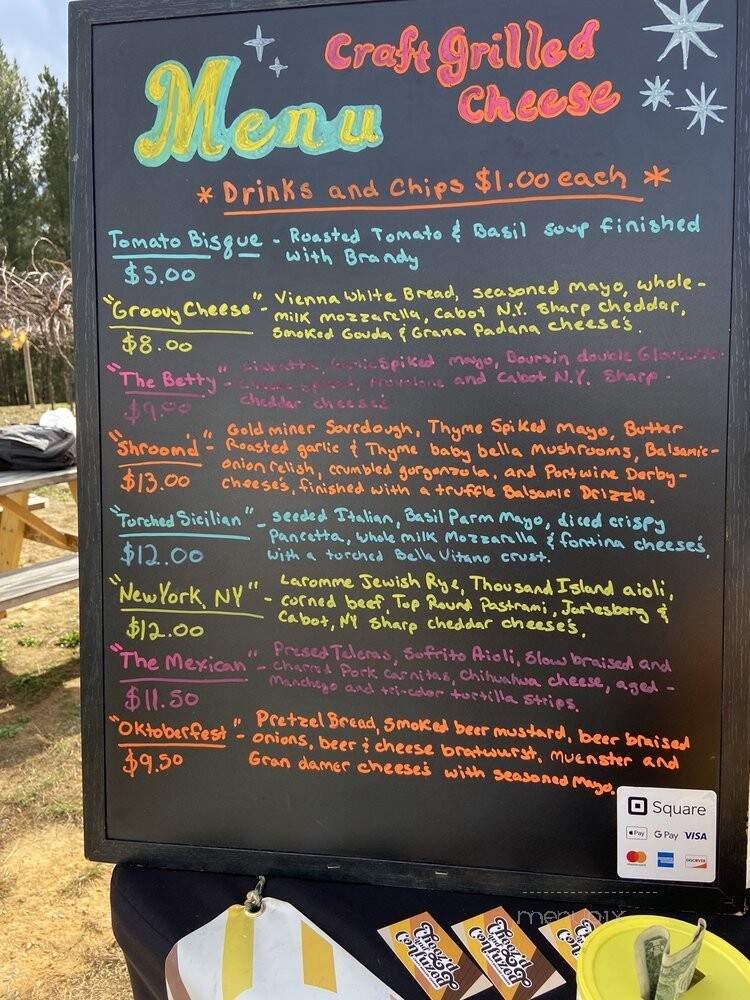 Menu
Craft Grilled
Cheese
* Drinks and Chips $1.00 each *
Tomato Bisque - Roasted Tomato & Basil soup finished
with Brandy
$5.00
"Groovy Cheese" - Vienna White Bread, seasoned mayo, whole-
milk mozzarella, Cabot N.Y. sharp cheddar,
smoked Gouda & Grana Padana cheese's.
$8.00
"The Betty" - Spiked mayo, Boursin double
and Cabot N.Y. Sharp -
cheddar cheese's
$9.00
"Shroom'd" - Gold miner Sourdough, Thyme Spiked Mayo, Butter
Roasted garlic & Thyme baby bella Mushrooms, Balsamic-
onion relish, crumbled gorgonzola, and Portwine Derby-
cheese's, finished with a truffle Balsamic Drizzle.
$13.00
"Torched Sicilian" - seeded Italian, Basil Parm Mayo, diced crispy
Pancetta, whole milk Mozzarella & fontina cheese's,
with a torched Bella Vitano crust.
$12.00
"New York, NY" - Laromme Jewish Rye, Thousand Island aioli,
corned beef, Top Round Pastrami, Jarlesberg &
Cabot, NY sharp cheddar cheese's.
$12.00
"The Mexican" - Presed Teleras, Sofrito Aioli, Slow braised and
charred Pork carnitas, Chihuahua cheese, aged -
Manchego and tri-color tortilla strips.
$11.50
"Oktoberfest" - Pretzel Bread, smoked beer mustard, beer braised
onions, beer & cheese bratwurst, muenster and
Gran damer cheese's with seasoned Mayo.
$9.50
Square
Pay G Pay VISA
DISCOVER
menupix
Thayzd
and
Confuzed
Thayzd
and
Confuzed